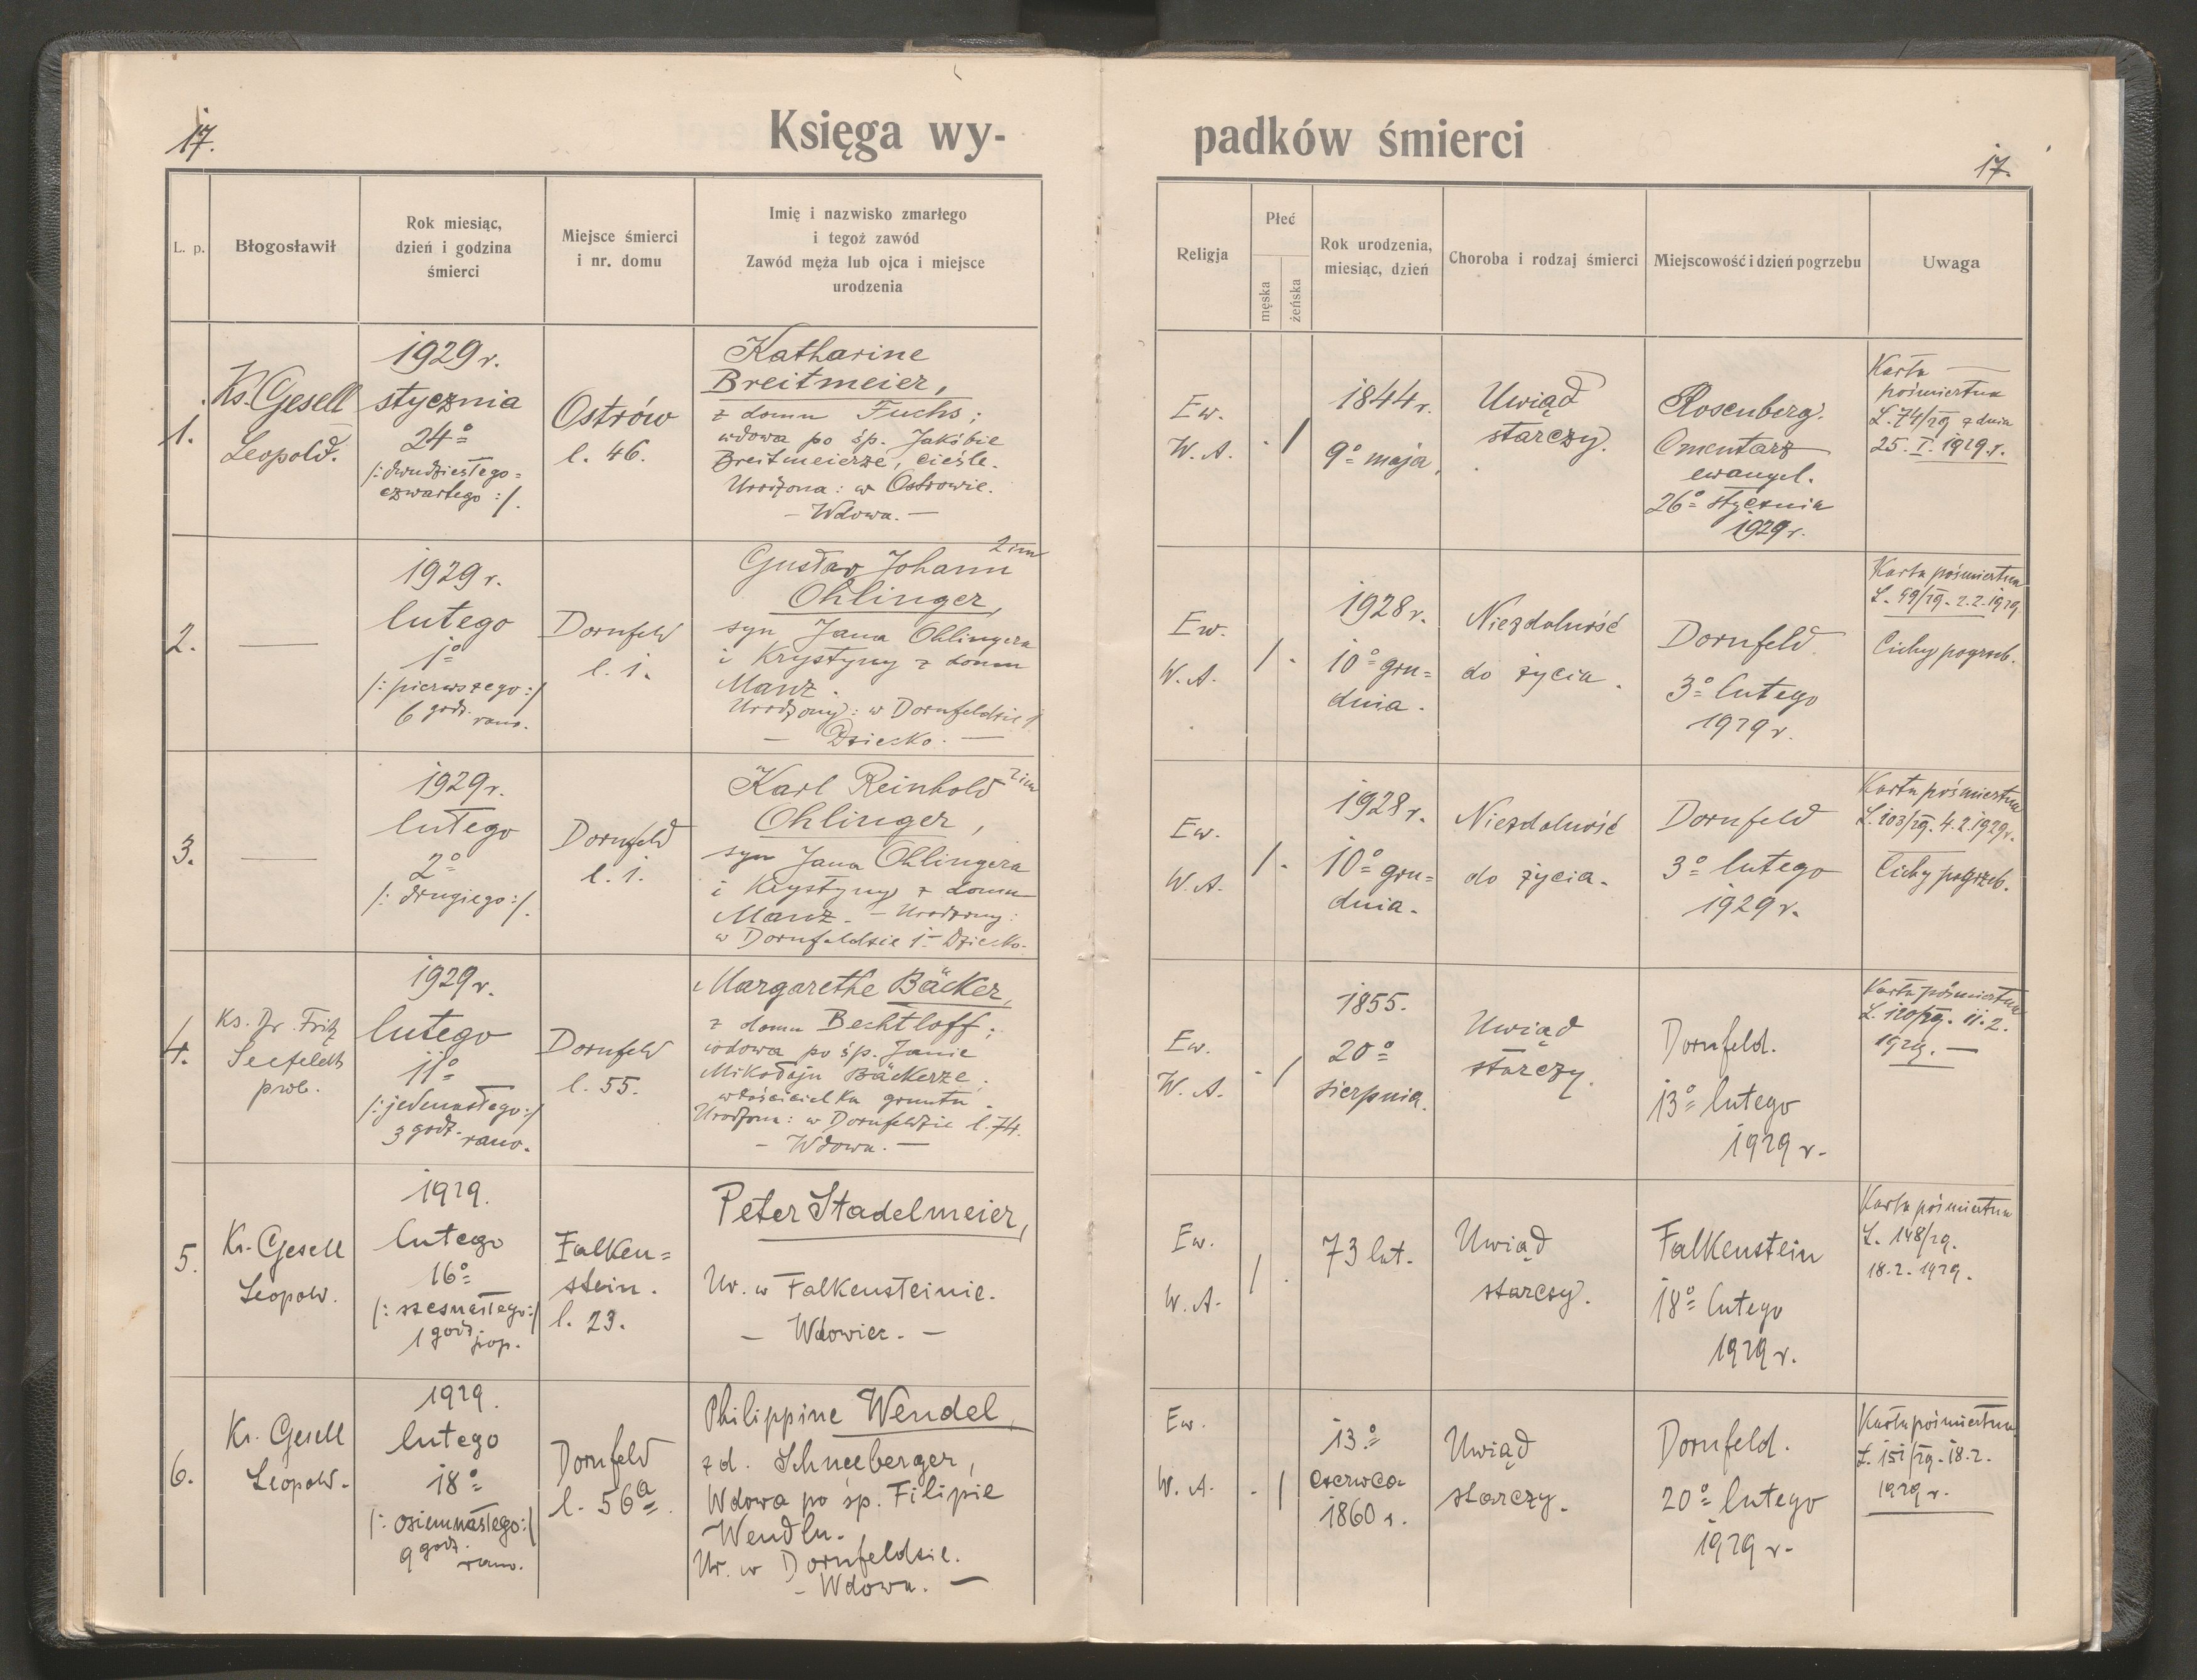 17.
Księga wy-
padków śmierci
17.
L. p.
Błogosławił
Rok miesiąc,
dzień i godzina
śmierci
Miejsce śmierci
i nr. domu
Imię i nazwisko zmarłego
i tegoż zawód
Zawód męża lub ojca i miejsce
urodzenia
Religja
Płeć
męska
żeńska
Rok urodzenia,
miesiąc, dzień
Choroba i rodzaj śmierci
Miejscowość i dzień pogrzebu
Uwaga
1.
Ks. Gesell
Leopold.
1929 r.
stycznia
24º
/: dwudziestego=
czwartego :/.
Ostrów
l. 46.
Katharine
Breitmeier,
z domu Fuchs;
wdowa po śp. Jakóbie
Breitmeierze, cieśle.
Urodzona: w Ostrowie.
— Wdowa. —
Ew.
W. A.
. /
1844 r.
9º maja.
Uwiąd
starczy.
Rosenberg.
Cmentarz
ewangel.
26º stycznia
1929 r.
Karta
pośmiertna
L. 74/29 z dnia
25. I. 1929. r.
2.
—
1929 r.
lutego
1º
/: pierwszego :/
6 godz. rano.
Dornfeld
l. 1.
Gustav Johann 2 im
Ohlinger,
syn Jana Ohlingera
i Krystyny z domu
Manz.
Urodzony: w Dornfeldzie 1
— Dziecko. —
Ew.
W. A.
/ .
1928 r.
10º gru=
dnia.
Niezdolność
do życia.
Dornfeld.
3º lutego
1929 r.
Karta pośmiertna
L. 99/29. 2.2.1929.
Cichy pogrzeb.
3.
—
1929 r.
lutego
2º
/: drugiego :/.
Dornfeld
l. 1.
Karl Reinhold 2 im
Ohlinger,
syn Jana Ohlingera
i Krystyny z domu
Manz. — Urodzony:
w Dornfeldzie 1 — Dziecko.
Ew.
W. A.
/ .
1928 r.
10º gru=
dnia.
Niezdolność
do życia.
Dornfeld
3º lutego
1929 r.
Karta pośmiertna
L. 103/29. 4.2.1929 r.
Cichy pogrzeb.
4.
Ks. Dr. Fritz
Seefeldt
prob.
1929 r.
lutego
11º
/: jedenastego :/
3 godz. rano.
Dornfeld
l. 55.
Margarethe Bäcker,
z domu Bechtloff;
wdowa po śp. Janie
Mikołaju Bäckerze,
właścicielka gruntu.
Urodzona: w Dornfeldzie l. 74.
— Wdowa. —
Ew.
W. A.
. /
1855.
20º
sierpnia.
Uwiąd
starczy.
Dornfeld.
13º lutego
1929 r.
Karta pośmiertna
L. 120/29. 11.2.
1929. —
5.
Ks. Gesell
Leopold.
1929.
lutego
16º
/: szesnastego :/
1 godz. pop.
Falken=
stein.
l. 23.
Peter Stadelmeier,
Ur. w Falkensteinie.
— Wdowiec. —
Ew.
W. A.
/ .
73 lat.
Uwiąd
starczy.
Falkenstein
18º lutego
1929 r.
Karta pośmiertna
L. 148/29.
18.2.1929.
6.
Ks. Gesell
Leopold.
1929.
lutego
18º
/: osiemnastego :/
9 godz. rano.
Dornfeld
l. 56a
Philippine Wendel,
z d. Schneeberger,
Wdowa po śp. Filipie
Wendlu.
Ur. w Dornfeldzie.
— Wdowa. —
Ew.
W. A.
. /
13º
czerwca
1860 r.
Uwiąd
starczy.
Dornfeld.
20º lutego
1929 r.
Karta pośmiertna
L. 151/29. 18.2.
1929 r.